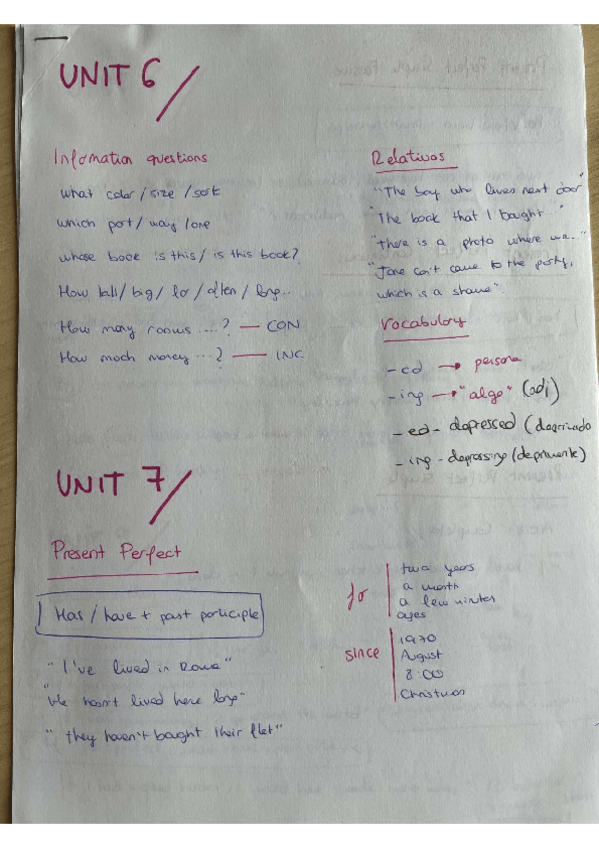 UNIT 6
Information questions
what color / size / sort
which port / way / one
whose book is this / is this book?
How tall / big / far / often / long..
How many rooms ....? — CON
How much money ...? — INC
Relativos
"The boy who lives next door"
"The book that I bought..."
"there is a photo where we.."
"Jane can't come to the party,
which is a shame".
Vocabulary
- ed → persona
- ing → "algo" (adj)
- ed - depressed (deprimido
- ing - depressing (deprimente)
UNIT 7
Present Perfect
Has / have + past participle
"I've lived in Rome"
"He hasn't lived here long"
"they haven't bought their flat"
for
two years
a month
a few minutes
ages
since
1970
August
8:00
Christmas